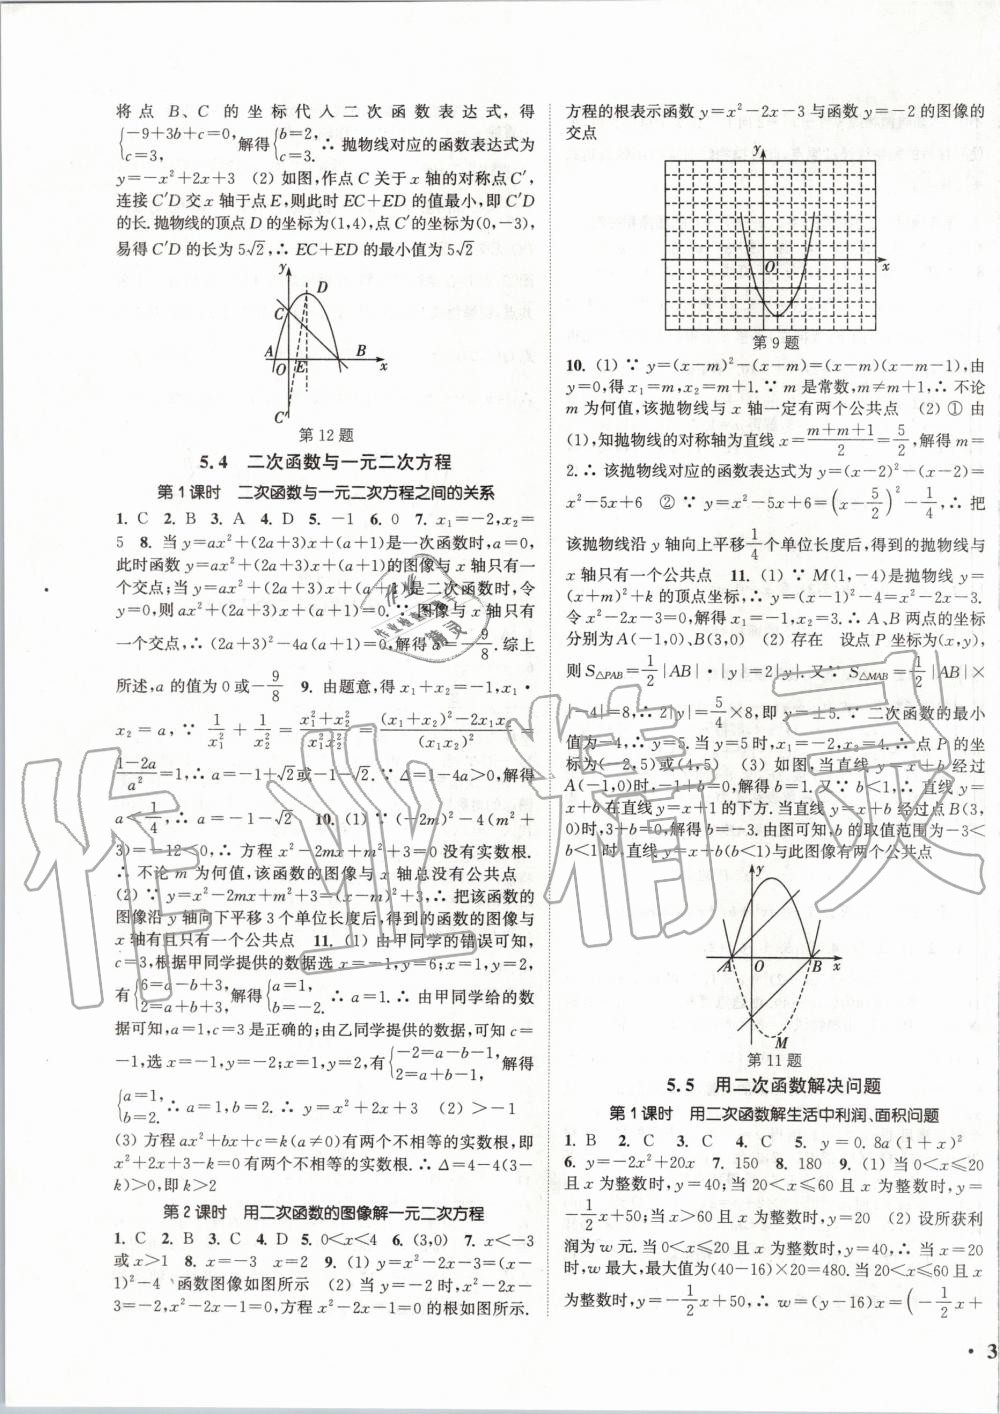 将点 B、C 的坐标代入二次函数表达式,得
{-9+3b+c=0, c=3, 解得{b=2, c=3. ∴ 抛物线对应的函数表达式为
y=-x²+2x+3 (2) 如图,作点 C 关于 x 轴的对称点 C′,
连接 C′D 交 x 轴于点 E,则此时 EC+ED 的值最小,即 C′D
的长.抛物线的顶点 D 的坐标为(1,4),点 C′的坐标为(0,-3),
易得 C′D 的长为 5√2,∴ EC+ED 的最小值为 5√2
y
D
C
A O E B x
C′
第 12 题
5.4 二次函数与一元二次方程
第 1 课时 二次函数与一元二次方程之间的关系
1. C 2. B 3. A 4. D 5. -1 6. 0 7. x₁=-2,x₂=
5 8. 当 y=ax²+(2a+3)x+(a+1)是一次函数时,a=0,
此时函数 y=ax²+(2a+3)x+(a+1)的图像与 x 轴只有一
个交点;当 y=ax²+(2a+3)x+(a+1)是二次函数时,令
y=0,则 ax²+(2a+3)x+(a+1)=0. ∵ 图像与 x 轴只有
一个交点,∴ (2a+3)²-4a(a+1)=0,解得 a=-9/8. 综上
所述,a 的值为 0 或-9/8 9. 由题意,得 x₁+x₂=-1,x₁·
x₂=a, ∵ 1/x₁²+1/x₂²=(x₁²+x₂²)/(x₁²x₂²)=((x₁+x₂)²-2x₁x₂)/(x₁x₂)²=
(1-2a)/a²=1,∴ a=-1+√2或-1-√2. ∵ Δ=1-4a>0,解得
a<1/4,∴ a=-1-√2 10. (1) ∵ (-2m)²-4(m²+
3)=-12<0,∴ 方程 x²-2mx+m²+3=0 没有实数根.
∴ 不论 m 为何值,该函数的图像与 x 轴总没有公共点
(2) ∵ y=x²-2mx+m²+3=(x-m)²+3,∴ 把该函数的
图像沿 y 轴向下平移 3 个单位长度后,得到的函数的图像与
x 轴有且只有一个公共点 11. (1) 由甲同学的错误可知,
c=3,根据甲同学提供的数据选 x=-1,y=6;x=1,y=2,
有{6=a-b+3, 2=a+b+3, 解得{a=1, b=-2. ∴ a=1. ∴ 由甲同学给的数
据可知,a=1,c=3 是正确的;由乙同学提供的数据,可知 c=
-1,选 x=-1,y=-2;x=1,y=2,有{-2=a-b-1, 2=a+b-1, 解得
{a=1, b=2. ∴ a=1,b=2. ∴ y=x²+2x+3 (2) >-1
(3) 方程 ax²+bx+c=k(a≠0)有两个不相等的实数根,即
x²+2x+3-k=0 有两个不相等的实数根.∴ Δ=4-4(3-
k)>0,即 k>2
第 2 课时 用二次函数的图像解一元二次方程
1. C 2. B 3. C 4. D 5. 0<x<4 6. (3,0) 7. x<-3
或 x>1 8. x=-3 x=2 9. (1) y=x²-2x-3=(x-
1)²-4 函数图像如图所示 (2) 当 y=-2 时,x²-2x-
3=-2,∴ x²-2x-1=0,方程 x²-2x-1=0 的根如图所示.
方程的根表示函数 y=x²-2x-3 与函数 y=-2 的图像的
交点
y
O x
第 9 题
10. (1) ∵ y=(x-m)²-(x-m)=(x-m)(x-m-1),由
y=0,得 x₁=m,x₂=m+1. ∵ m 是常数,m≠m+1,∴ 不论
m 为何值,该抛物线与 x 轴一定有两个公共点 (2) ① 由
(1),知抛物线的对称轴为直线 x=(m+m+1)/2=5/2,解得 m=
2. ∴ 该抛物线对应的函数表达式为 y=(x-2)²-(x-2)=
x²-5x+6 ② ∵ y=x²-5x+6=(x-5/2)²-1/4,∴ 把
该抛物线沿 y 轴向上平移1/4个单位长度后,得到的抛物线与
x 轴只有一个公共点 11. (1) ∵ M(1,-4)是抛物线 y=
(x+m)²+k 的顶点坐标,∴ y=(x-1)²-4=x²-2x-3.
令 x²-2x-3=0,解得 x₁=-1,x₂=3. ∴ A、B 两点的坐标
分别为 A(-1,0)、B(3,0) (2) 存在 设点 P 坐标为(x,y),
则 S△PAB=1/2|AB|·|y|=2|y|. 又∵ S△MAB=1/2|AB|×
|-4|=8,∴ 2|y|=5/4×8,即 y=±5. ∵ 二次函数的最小
值为-4,∴ y=5. 当 y=5 时,x₁=-2,x₂=4. ∴ 点 P 的坐
标为(-2,5)或(4,5) (3) 如图,当直线 y=x+b 经过
A(-1,0)时,-1+b=0,解得 b=1. 又∵ b<1,∴ 直线 y=
x+b 在直线 y=x+1 的下方.当直线 y=x+b 经过点 B(3,
0)时,3+b=0,解得 b=-3. 由图可知,b 的取值范围为-3<
b<1 时,直线 y=x+b(b<1)与此图像有两个公共点
y
A O B x
M
第 11 题
5.5 用二次函数解决问题
第 1 课时 用二次函数解生活中利润、面积问题
1. B 2. C 3. C 4. C 5. y=0.8a(1+x)²
6. y=-2x²+20x 7. 150 8. 180 9. (1) 当 0<x≤20
且 x 为整数时,y=40;当 20<x≤60 且 x 为整数时,y=
-1/2x+50;当 x>60 且 x 为整数时,y=20 (2) 设所获利
润为 w 元.当 0<x≤20 且 x 为整数时,y=40,∴ 当 x=20
时,w 最大,最大值为(40-16)×20=480. 当 20<x≤60 且 x
为整数时,y=-1/2x+50,∴ w=(y-16)x=(-1/2x+
· 3
作业精灵